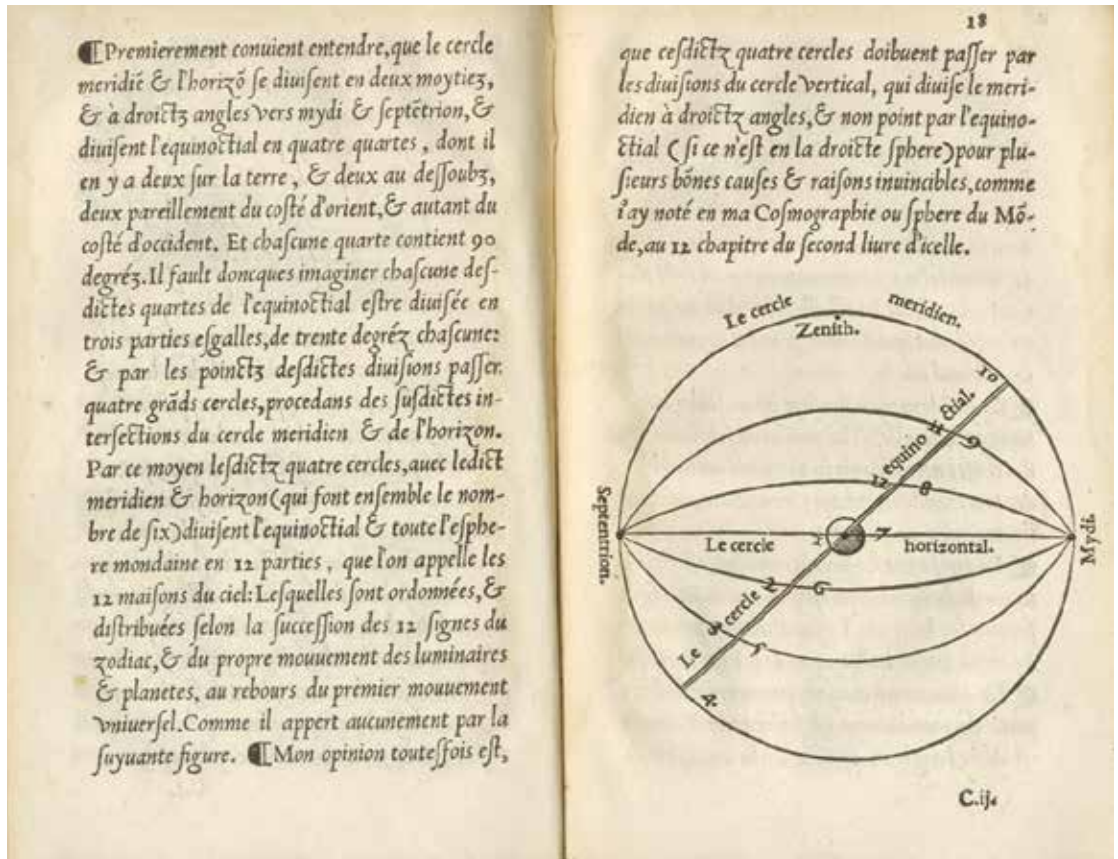 ¶Premierement conuient entendre,que le cercle
meridiẽ & l'horizõ ſe diuiſent en deux moytiez,
& à droictz angles vers mydi & ſeptẽtrion,&
diuiſent l'equinoctial en quatre quartes , dont il
en y a deux ſur la terre , & deux au deſſoubz,
deux pareillement du coſté d'orient,& autant du
coſté d'occident. Et chaſcune quarte contient 90
degréz.Il fault doncques imaginer chaſcune deſ-
dictes quartes de l'equinoctial eſtre diuiſée en
trois parties eſgalles,de trente degréz chaſcune:
& par les poinctz deſdictes diuiſions paſſer
quatre grãds cercles,procedans des ſuſdictes in-
terſections du cercle meridien & de l'horizon.
Par ce moyen leſdictz quatre cercles,auec ledict
meridien & horizon(qui font enſemble le nom-
bre de ſix)diuiſent l'equinoctial & toute l'eſphe-
re mondaine en 12 parties , que l'on appelle les
12 maiſons du ciel:Leſquelles ſont ordonnées,&
diſtribuées ſelon la ſucceſſion des 12 ſignes du
zodiac,& du propre mouuement des luminaires
& planetes, au rebours du premier mouuement
vniuerſel.Comme il appert aucunement par la
ſuyuante figure. ¶Mon opinion touteſfois eſt,
18
que ceſdictz quatre cercles doibuent paſſer par
les diuiſions du cercle vertical, qui diuiſe le meri-
dien à droictz angles,& non point par l'equino-
ctial ( ſi ce n'eſt en la droicte ſphere)pour plu-
ſieurs bõnes cauſes & raiſons inuincibles,comme
i'ay noté en ma Coſmographie ou ſphere du Mõ-
de,au 12 chapitre du ſecond liure d'icelle.
Le cercle meridien.
Zenith.
10
11
9
equino ctial.
12
8
Septentrion.
Le cercle
7
horizontal.
Mydi.
2
6
Le cercle
3
5
4
C.ij.